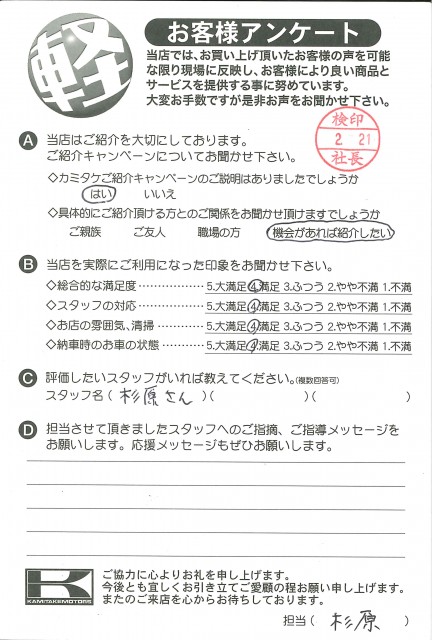 軽
お客様アンケート
当店では、お買い上げ頂いたお客様の声を可能
な限り現場に反映し、お客様により良い商品と
サービスを提供する事に努めています。
大変お手数ですが是非お声をお聞かせ下さい。
検印
2 21
社長
A 当店はご紹介を大切にしております。
ご紹介キャンペーンについてお聞かせ下さい。
◇カミタケご紹介キャンペーンのご説明はありましたでしょうか
はい いいえ
◇具体的にご紹介頂ける方とのご関係をお聞かせ頂けますでしょうか
ご親族 ご友人 職場の方 機会があれば紹介したい
B 当店を実際にご利用になった印象をお聞かせ下さい。
◇総合的な満足度……………… 5.大満足 4.満足 3.ふつう 2.やや不満 1.不満
◇スタッフの対応……………… 5.大満足 4.満足 3.ふつう 2.やや不満 1.不満
◇お店の雰囲気、清掃………… 5.大満足 4.満足 3.ふつう 2.やや不満 1.不満
◇納車時のお車の状態………… 5.大満足 4.満足 3.ふつう 2.やや不満 1.不満
C 評価したいスタッフがいれば教えてください。(複数回答可)
スタッフ名( 杉原さん )( )( )
D 担当させて頂きましたスタッフへのご指摘、ご指導メッセージを
お願いします。応援メッセージもぜひお願いします。
KAMITAKEMOTORS
ご協力に心よりお礼を申し上げます。
今後とも宜しくお引き立てご愛顧の程お願い申し上げます。
またのご来店を心からお待ちしております。
担当( 杉原 )